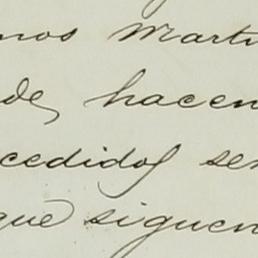 mos Marti
de hacen
cedidos ser
que siguen